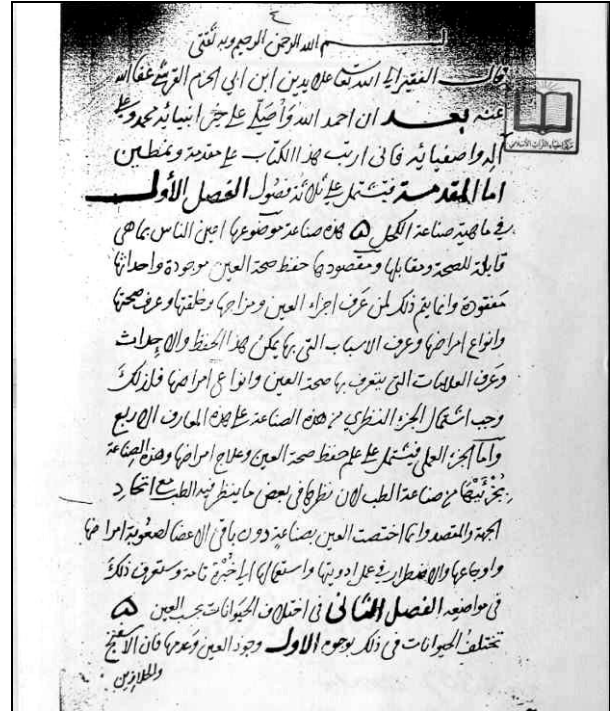 بسم الله الرحمن الرحيم وبه ثقتي
قال الفقير الى الله تعالى علاء الدين ابن ابي الحزم القرشي عفا الله
عنه بعد ان احمد الله واصلي على خير انبيائه محمد وعلى
آله واصفيائه فاني ارتب هذا الكتاب على مقدمة ونمطين
اما المقدمة فتشتمل على ثلاثة فصول الفصل الأول
في ماهية صناعة الكحل هذه صناعة موضوعها اعين الناس بما هي
قابلة للصحة ومقابلها ومقصودها حفظ صحة العين موجودة واحداثها
مفقودة وانما يتم ذلك لمن عرف اجزاء العين ومزاجها وخلقتها وعرف صحتها
وانواع امراضها وعرف الاسباب التي بها يمكن هذا الحفظ والاحداث
وعرف العلامات التي يتعرف بها صحة العين وانواع امراضها فلذلك
وجب اشتمال الجزء النظري من هذه الصناعة على هذه المعارف الاربع
واما الجزء العملي فيشتمل على علم حفظ صحة العين وعلاج امراضها وهذه الصناعة
بجزئيتها من صناعة الطب لان نظرها في بعض ما ينظر فيه الطب مع اتحاد
الجهة والمقصد وانما اختصت العين بصناعة دون باقي الاعضا لصعوبة امراضها
واوجاعها والاضطرار في عمل ادويتها واستعمالها الى خبرة تامة وستعرف ذلك
في مواضعه الفصل الثاني في اختلاف الحيوانات بحسب العين
تختلف الحيوانات في ذلك بوجوه الاول وجود العين وعدمها فان الاسفنج
والحلازين